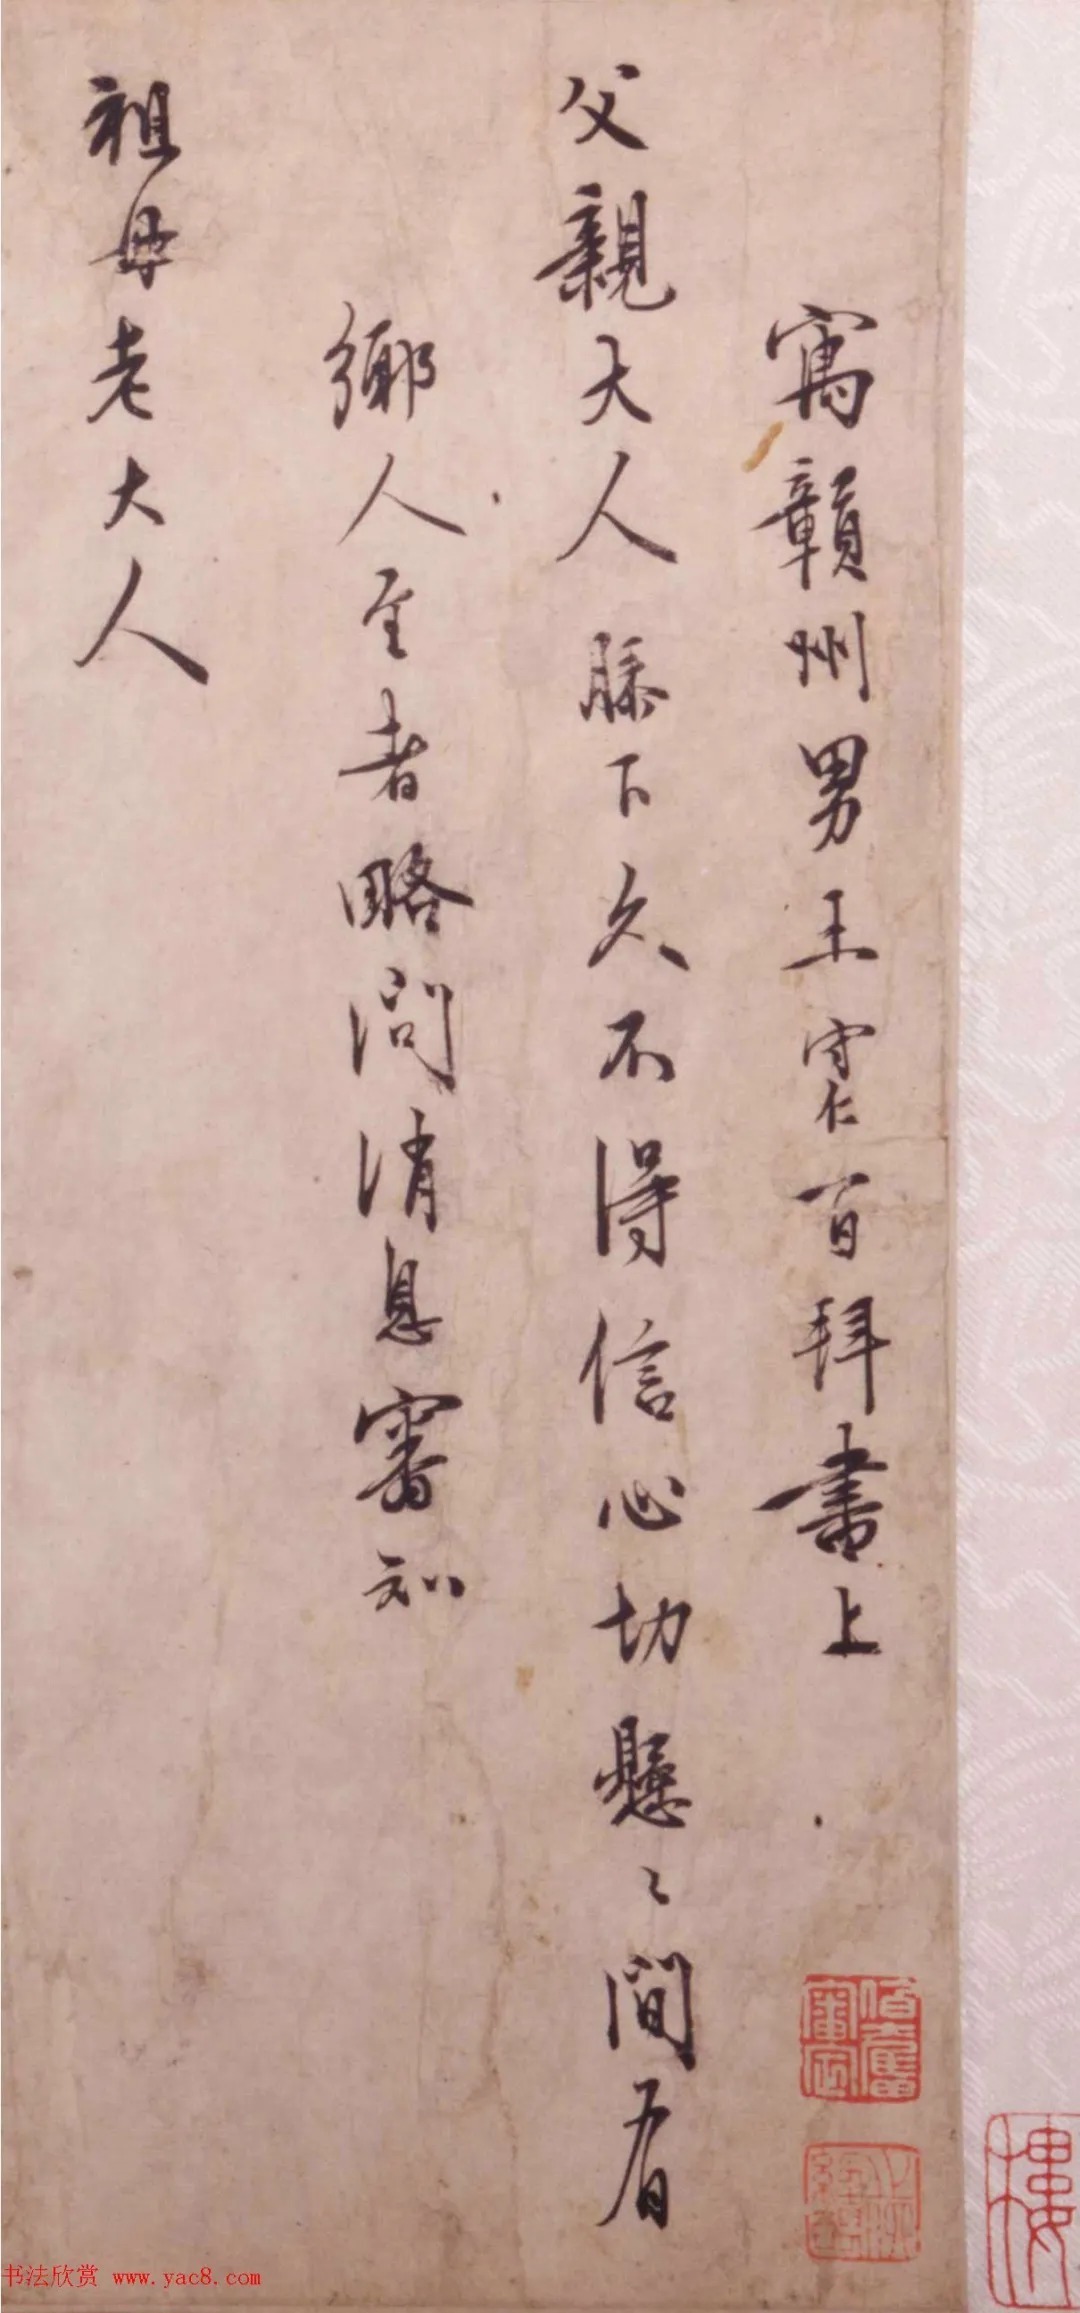 寓贛州男王守仁百拜書上
父親大人膝下久不得信心切懸〻間有
鄉人至者略問消息審知
祖母老大人
樓
书法欣赏 www.yac8.com